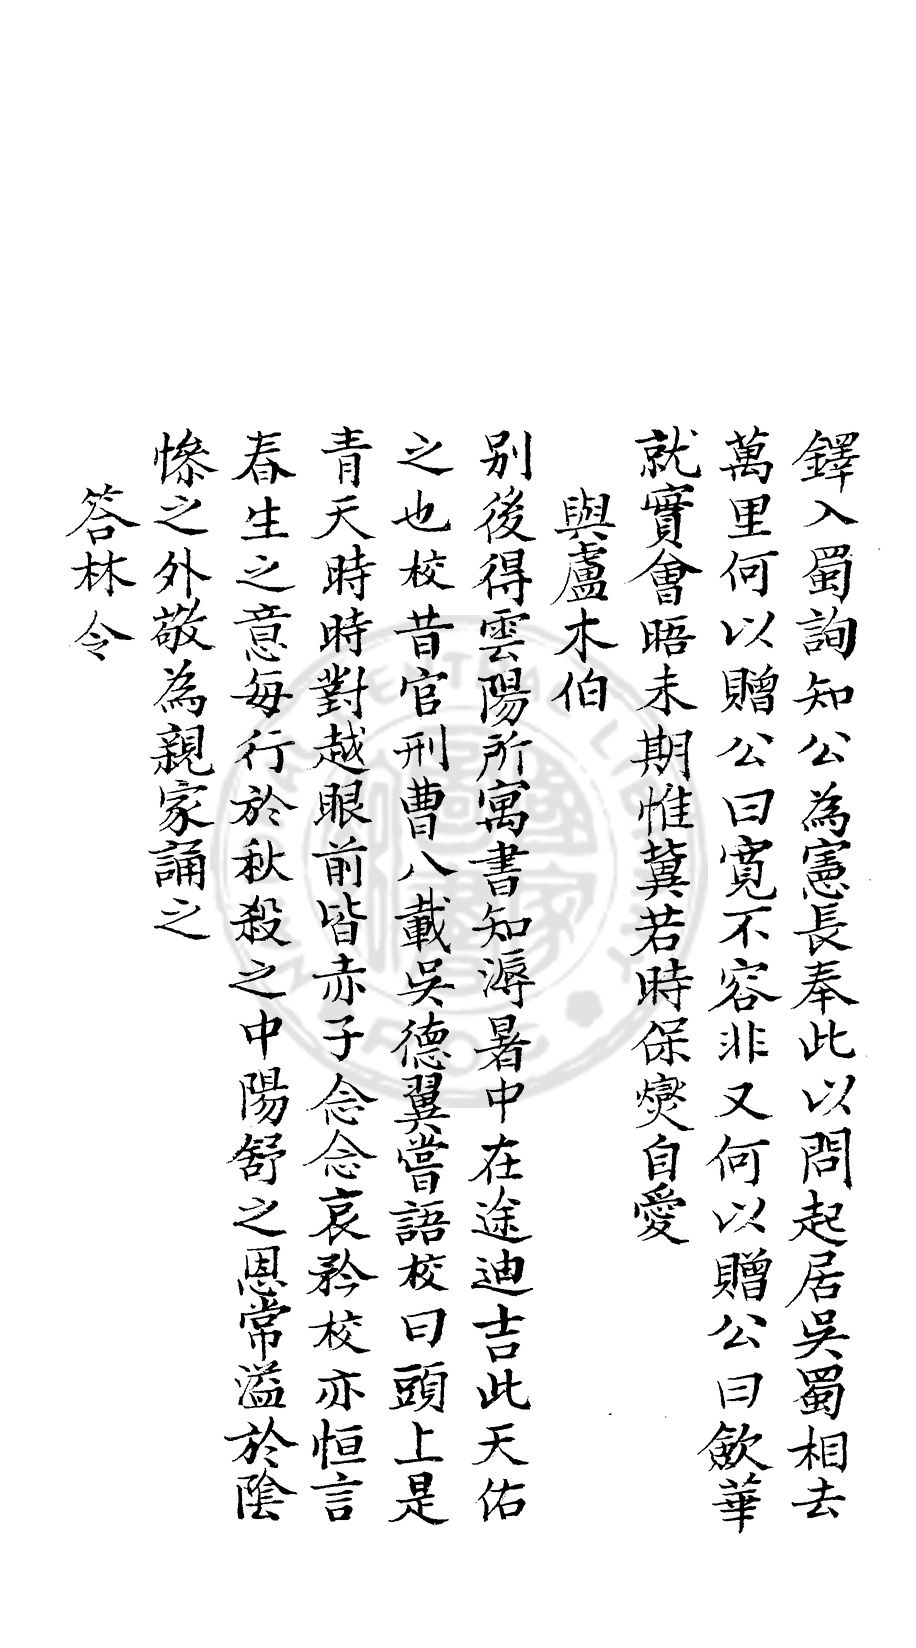 鐸入蜀詢知公為憲長奉此以問起居吳蜀相去
萬里何以贈公曰寛不容非又何以贈公曰歛華
就實會晤未期惟冀若時保爕自愛
與盧木伯
別後得雲陽所寓書知溽暑中在途迪吉此天佑
之也校昔官刑曹八載吳德翼嘗語校曰頭上是
青天時時對越眼前皆赤子念念哀矜校亦恒言
春生之意每行於秋殺之中陽舒之恩常溢於陰
慘之外敬為親家誦之
答林令